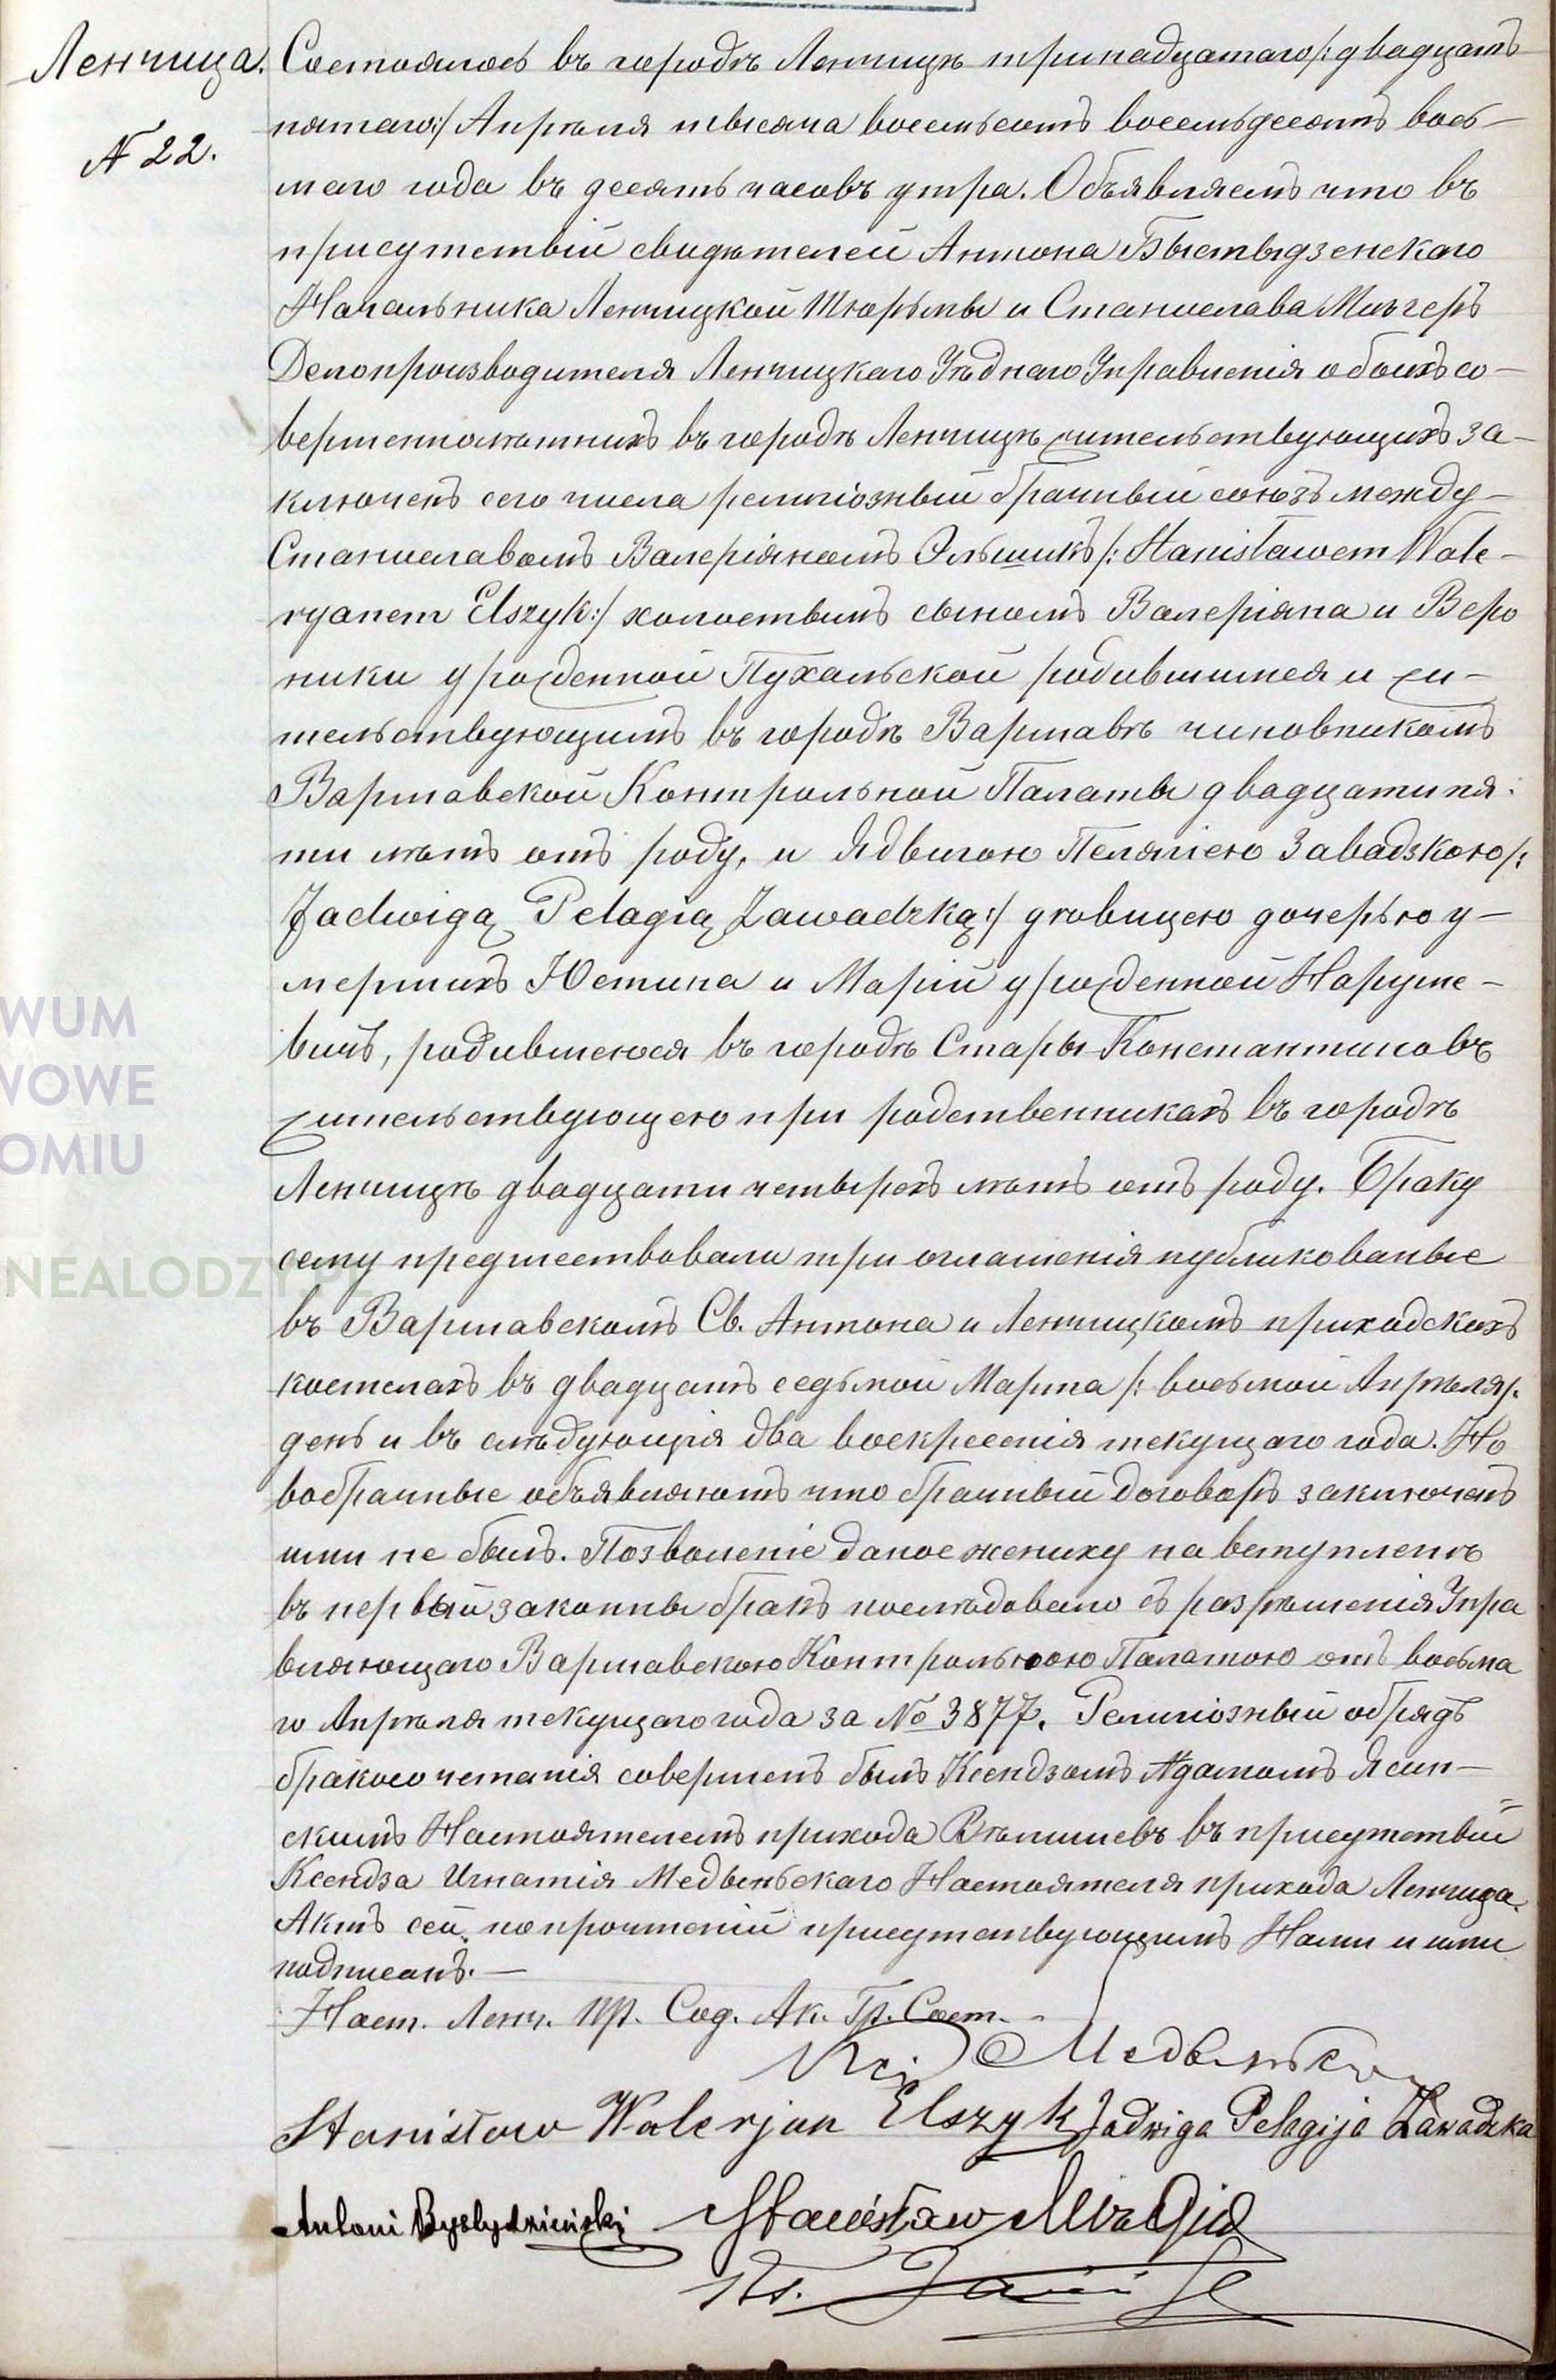 Ленчица.
№ 22.
Состоялось въ городѣ Ленчицѣ тринадцатаго /: двадцать
пятаго :/ Апрѣля тысяча восемьсотъ восемьдесятъ вось-
маго года въ десять часовъ утра. Объявляемъ что въ
присутствіи свидѣтелей Антона Быстыдзенскаго
Начальника Ленчицкой Тюрьмы и Станислава
Делопроизводителя Ленчицкаго Уѣднаго Управленія обоихъ со-
вершеннолѣтнихъ въ городѣ Ленчицѣ жительствующихъ за-
ключенъ сего числа религіозный брачный союзъ между-
Станиславомъ Валеріяномъ Эльшикъ /: Stanisławem Wale-
ryanem Elszyk :/ холостымъ сыномъ Валеріяна и Веро
ники урожденной Пухальской родившимся и жи-
тельствующимъ въ городѣ Варшавѣ чиновникомъ
Варшавской Контрольной Палаты двадцатипя-
ти лѣтъ отъ роду, и Ядвигою Пелягіею Завадзкою /:
Jadwigą Pelagią Zawadzką :/ дѣвицею дочерью у-
мершихъ Юстина и Маріи урожденной Наруше-
вичъ, родившеюся въ городѣ Стары Константиновъ
жительствующею при родственникахъ въ городѣ
Ленчицѣ двадцати четырехъ лѣтъ отъ роду. Браку
сему предшествовали три оглашенія публикованые
въ Варшавскомъ Св. Антона и Ленчицкомъ приходскихъ
костелахъ въ двадцать седьмой Марта /: восьмой Апрѣля /:
день и въ слѣдующія два воскресенія текущаго года. Но
вобрачные объявляютъ что брачный договоръ заключенъ
ими не былъ. Позволеніе даное жениху на вступленѣ
въ первый законны бракъ послѣдовало съ разрѣшенія Упра
вляющаго Варшавскою Контрольною Палатою отъ восьма
го Апрѣля текущаго года за № 3877. Религіозный обрядъ
бракосочетанія совершенъ былъ Ксендзомъ Адамомъ Ясин-
скимъ Настоятелемъ прихода въ присутствіи
Ксендза Игнатія Медвеньскаго Настоятеля прихода Ленчица.
Актъ сей по прочтеніи присутствующимъ Нами и ими
подписанъ. —
Наст. Ленч. пр. Сод. Ак. Гр. Сост.
Stanisław Walerjan Elszyk Jadwiga Pelagija Zawadzka
Antoni Bystydzieński Stanisław
Ks.
WUM
WOWE
OMIU
NEALODZY.PL